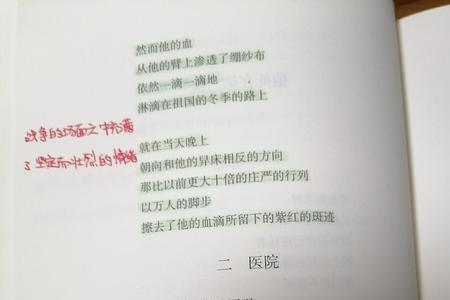 然而他的血
从他的臂上渗透了绷纱布
依然一滴一滴地
淋滴在祖国的冬季的路上
就在当天晚上
朝向和他的舁床相反的方向
那比以前更大十倍的庄严的行列
以万人的脚步
擦去了他的血滴所留下的紫红的斑迹
二 医院
战争的场面之中充满
了坚定而壮烈的情绪